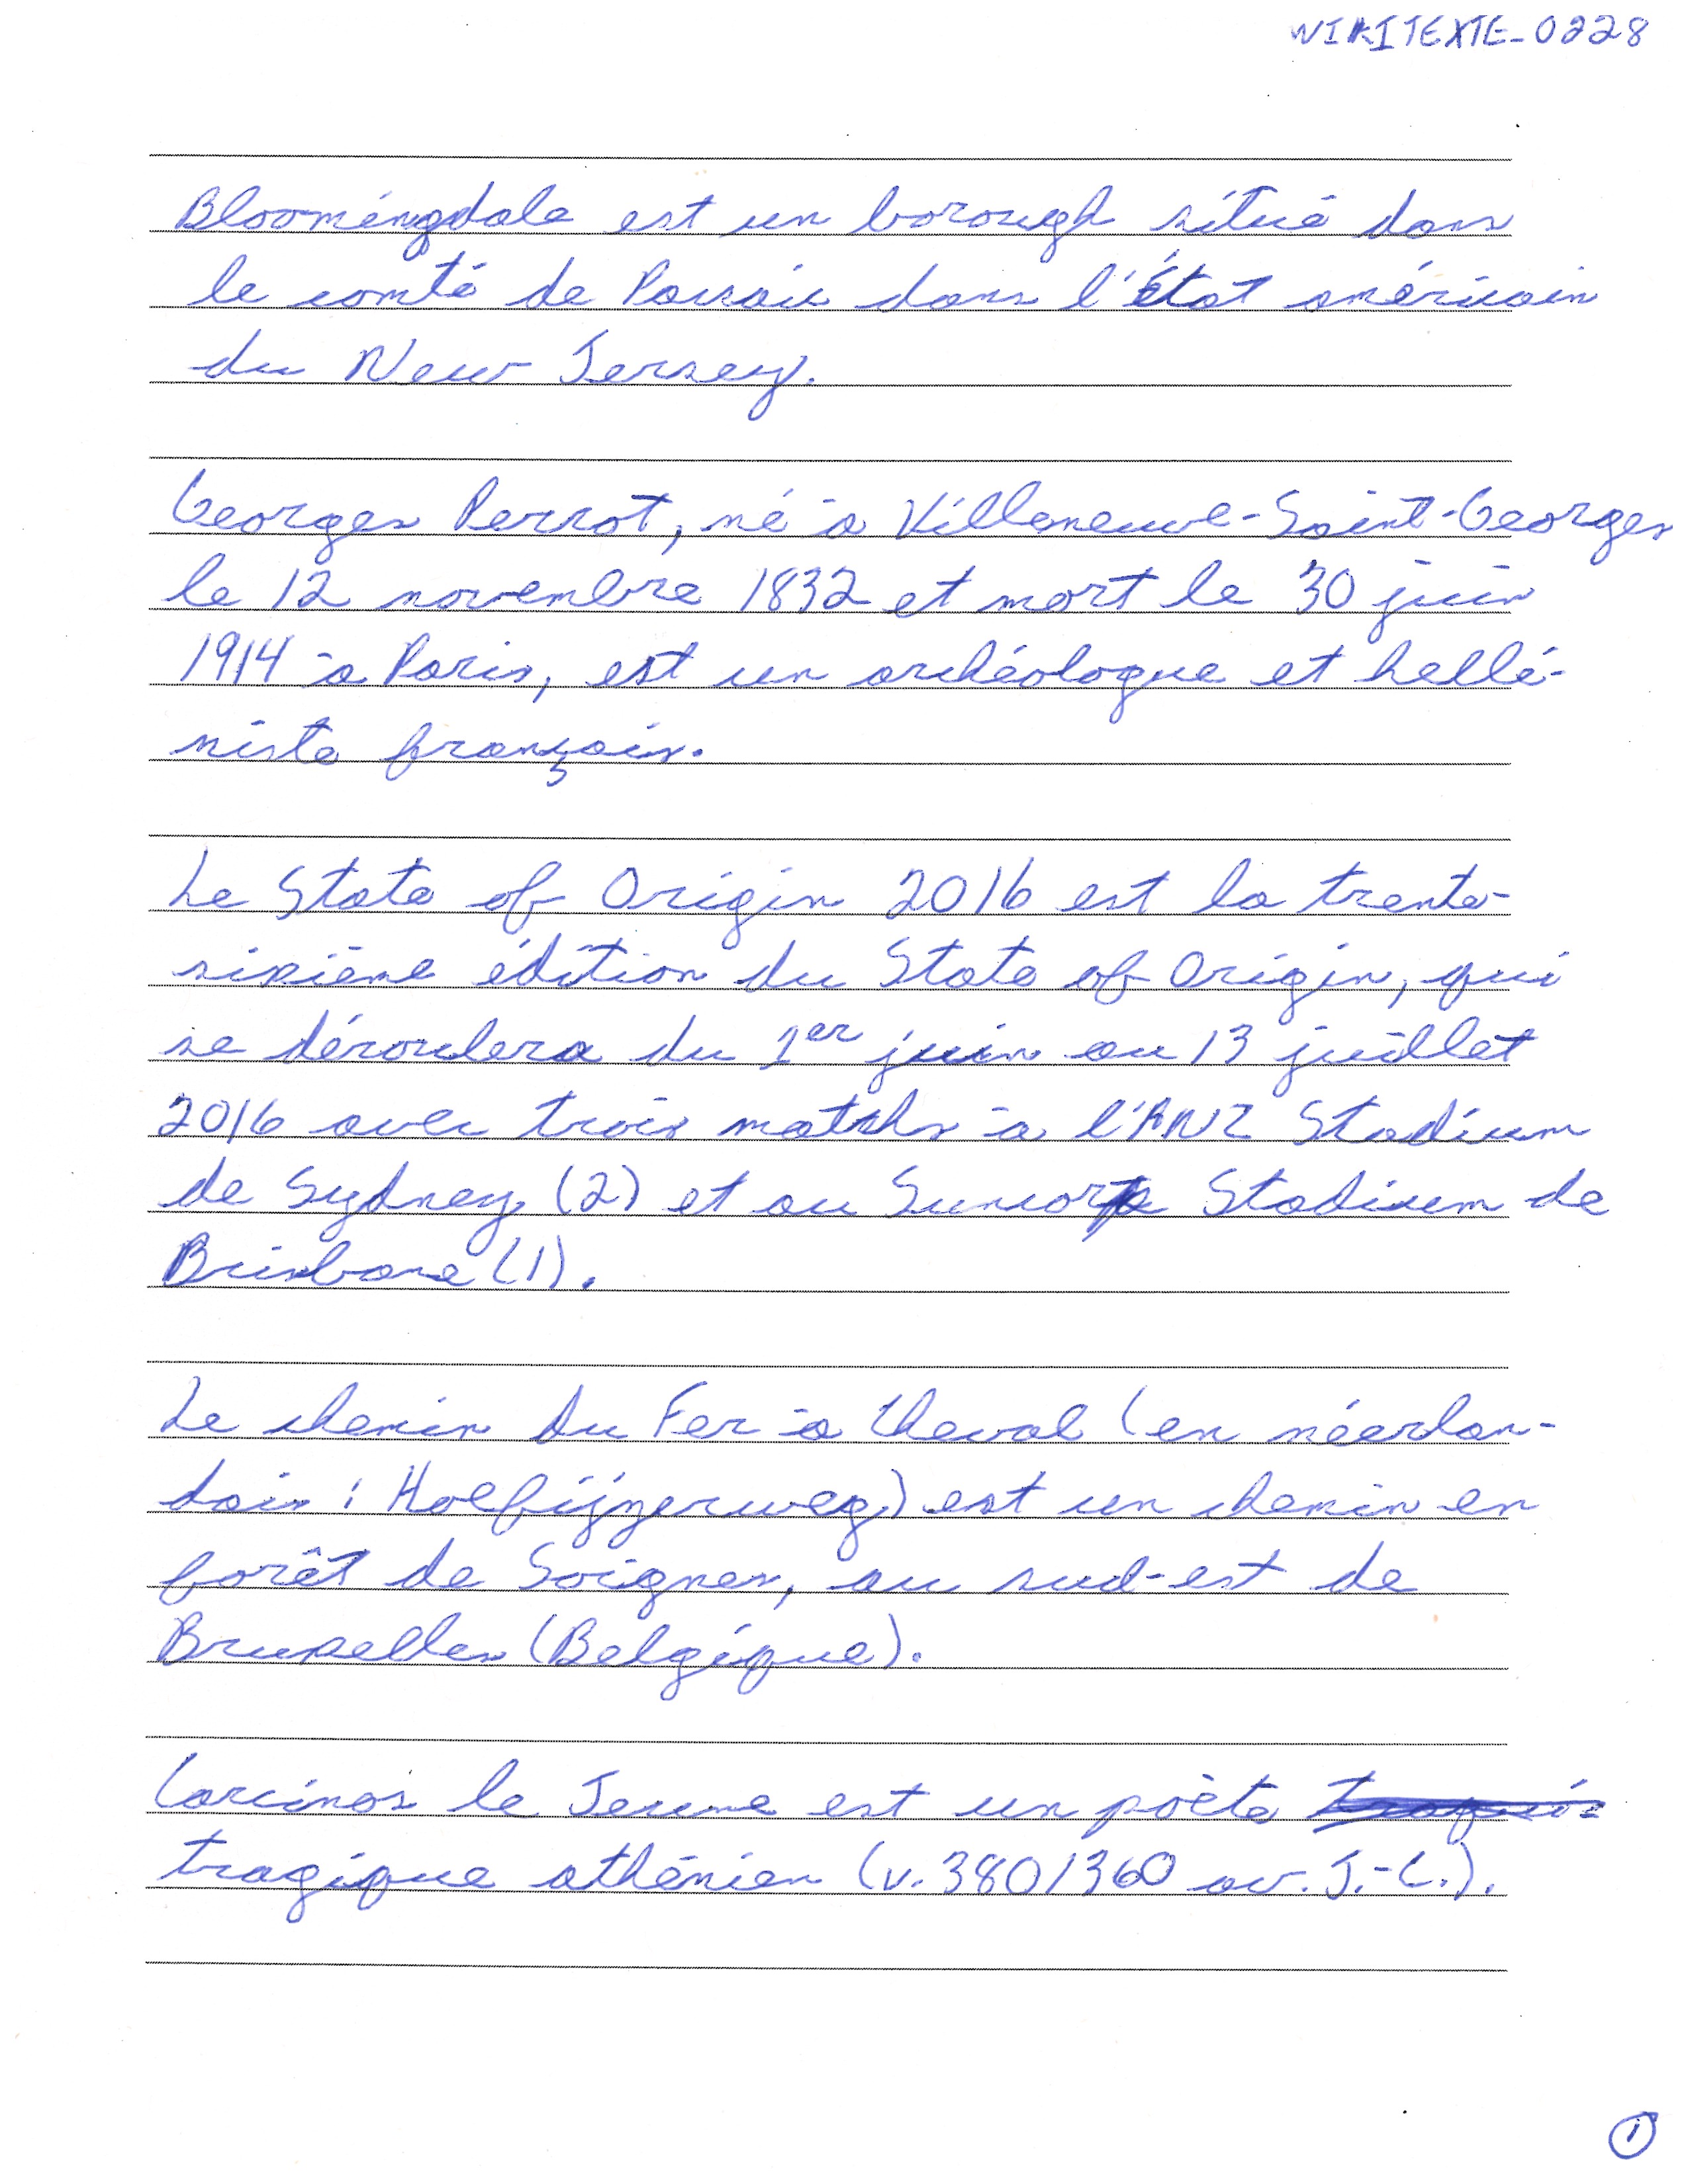 WIKITEXTE_0228
Bloomingdale est un borough situé dans
le comté de Passaic dans l'État américain
du New Jersey.
Georges Perrot, né à Villeneuve-Saint-Georges
le 12 novembre 1832 et mort le 30 juin
1914 à Paris, est un archéologue et hellé-
niste français.
Le State of Origin 2016 est la trente-
sixième édition du State of Origin, qui
se déroulera du 1er juin au 13 juillet
2016 avec trois matchs à l'ANZ Stadium
de Sydney (2) et au Suncorp Stadium de
Brisbane (1).
Le chemin du Fer à Cheval (en néerlan-
dais : Hoefijzerweg) est un chemin en
forêt de Soignes, au sud-est de
Bruxelles (Belgique).
Carcinos le Jeune est un poète
tragique athénien (v. 380/360 av. J.-C.).
1